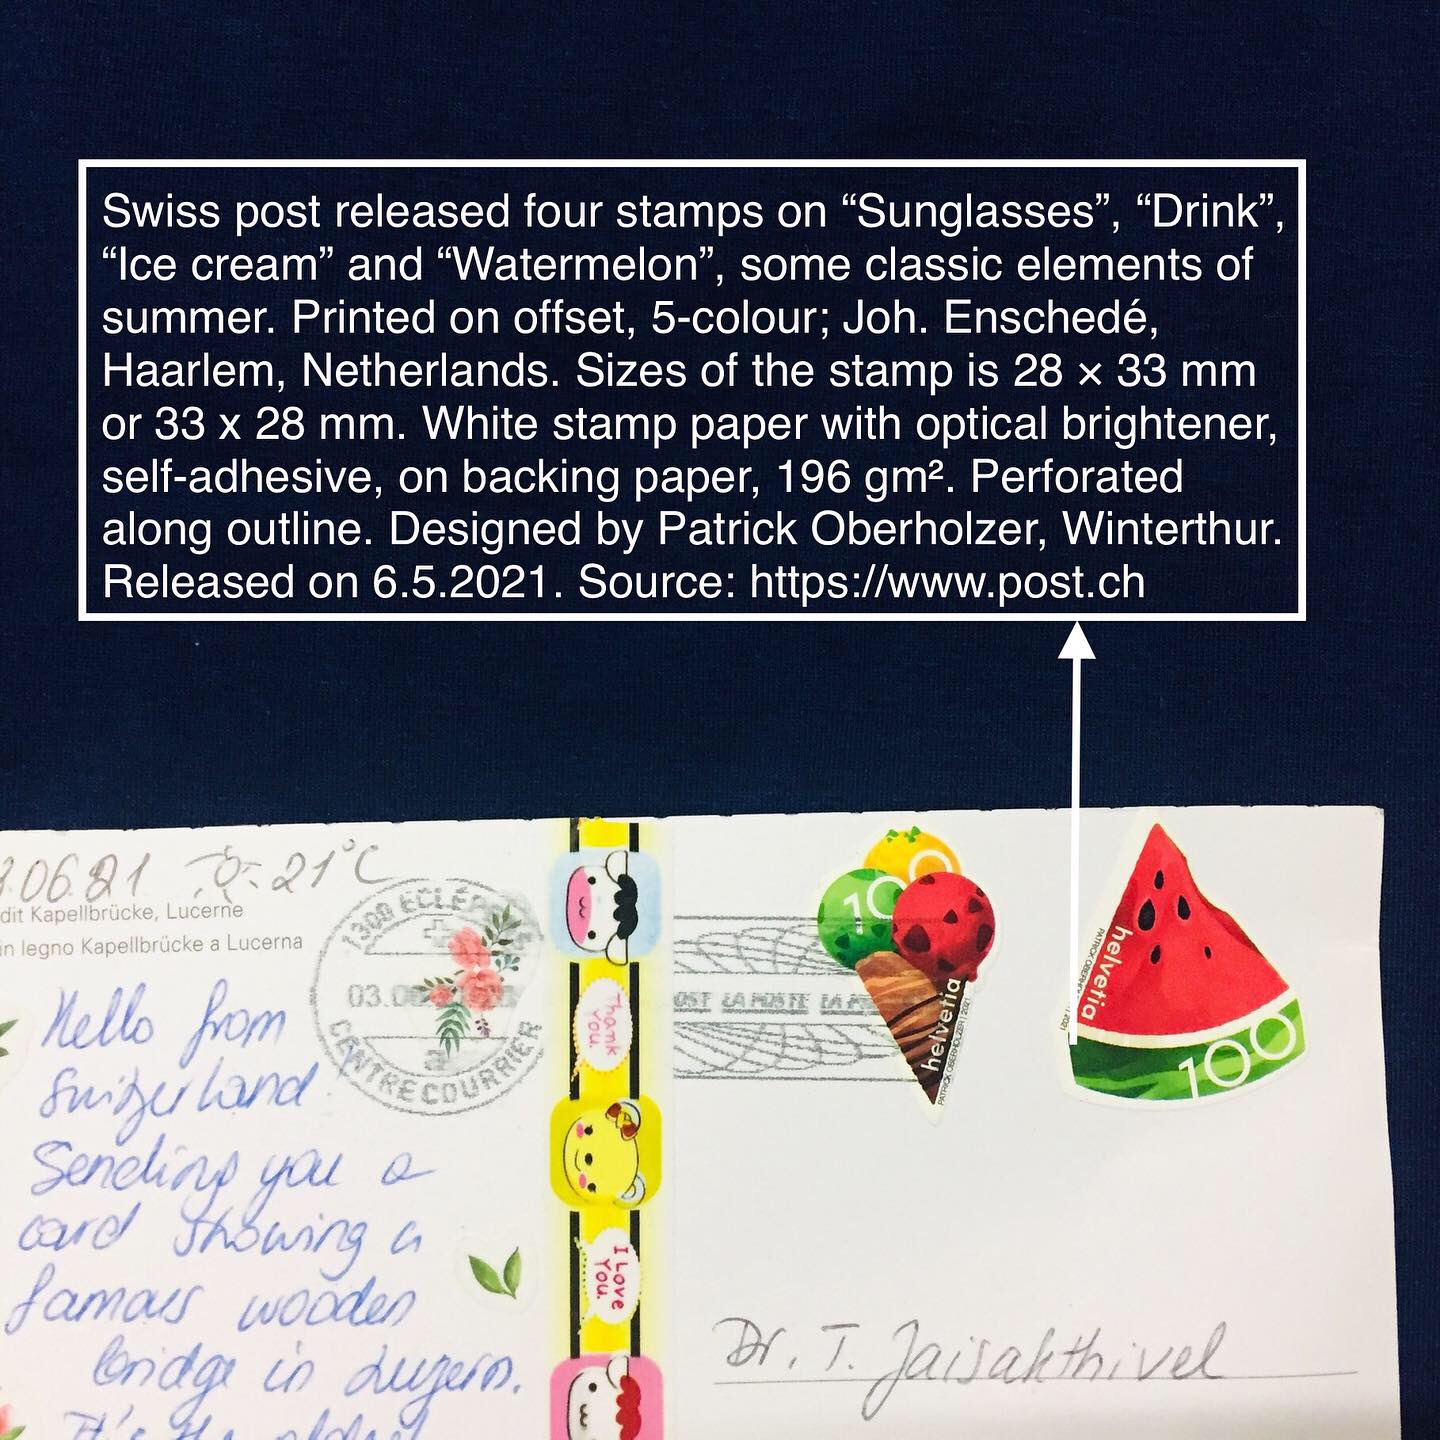 Swiss post released four stamps on “Sunglasses”, “Drink”,
“Ice cream” and “Watermelon”, some classic elements of
summer. Printed on offset, 5-colour; Joh. Enschedé,
Haarlem, Netherlands. Sizes of the stamp is 28 × 33 mm
or 33 x 28 mm. White stamp paper with optical brightener,
self-adhesive, on backing paper, 196 gm². Perforated
along outline. Designed by Patrick Oberholzer, Winterthur.
Released on 6.5.2021. Source: https://www.post.ch
.06.21 21°C
dit Kapellbrücke, Lucerne
in legno Kapellbrücke a Lucerna
Hello from
Switzerland.
Sending you a
card showing a
famous wooden
bridge in Luzern.
It's the oldest
03.0
CENTRE COURRIER
Thank
You.
I Love
You.
LA POSTE
100
helvetia
PATRICK OBERHOLZER 2021
helvetia
100
Dr. T. Jaisakthivel